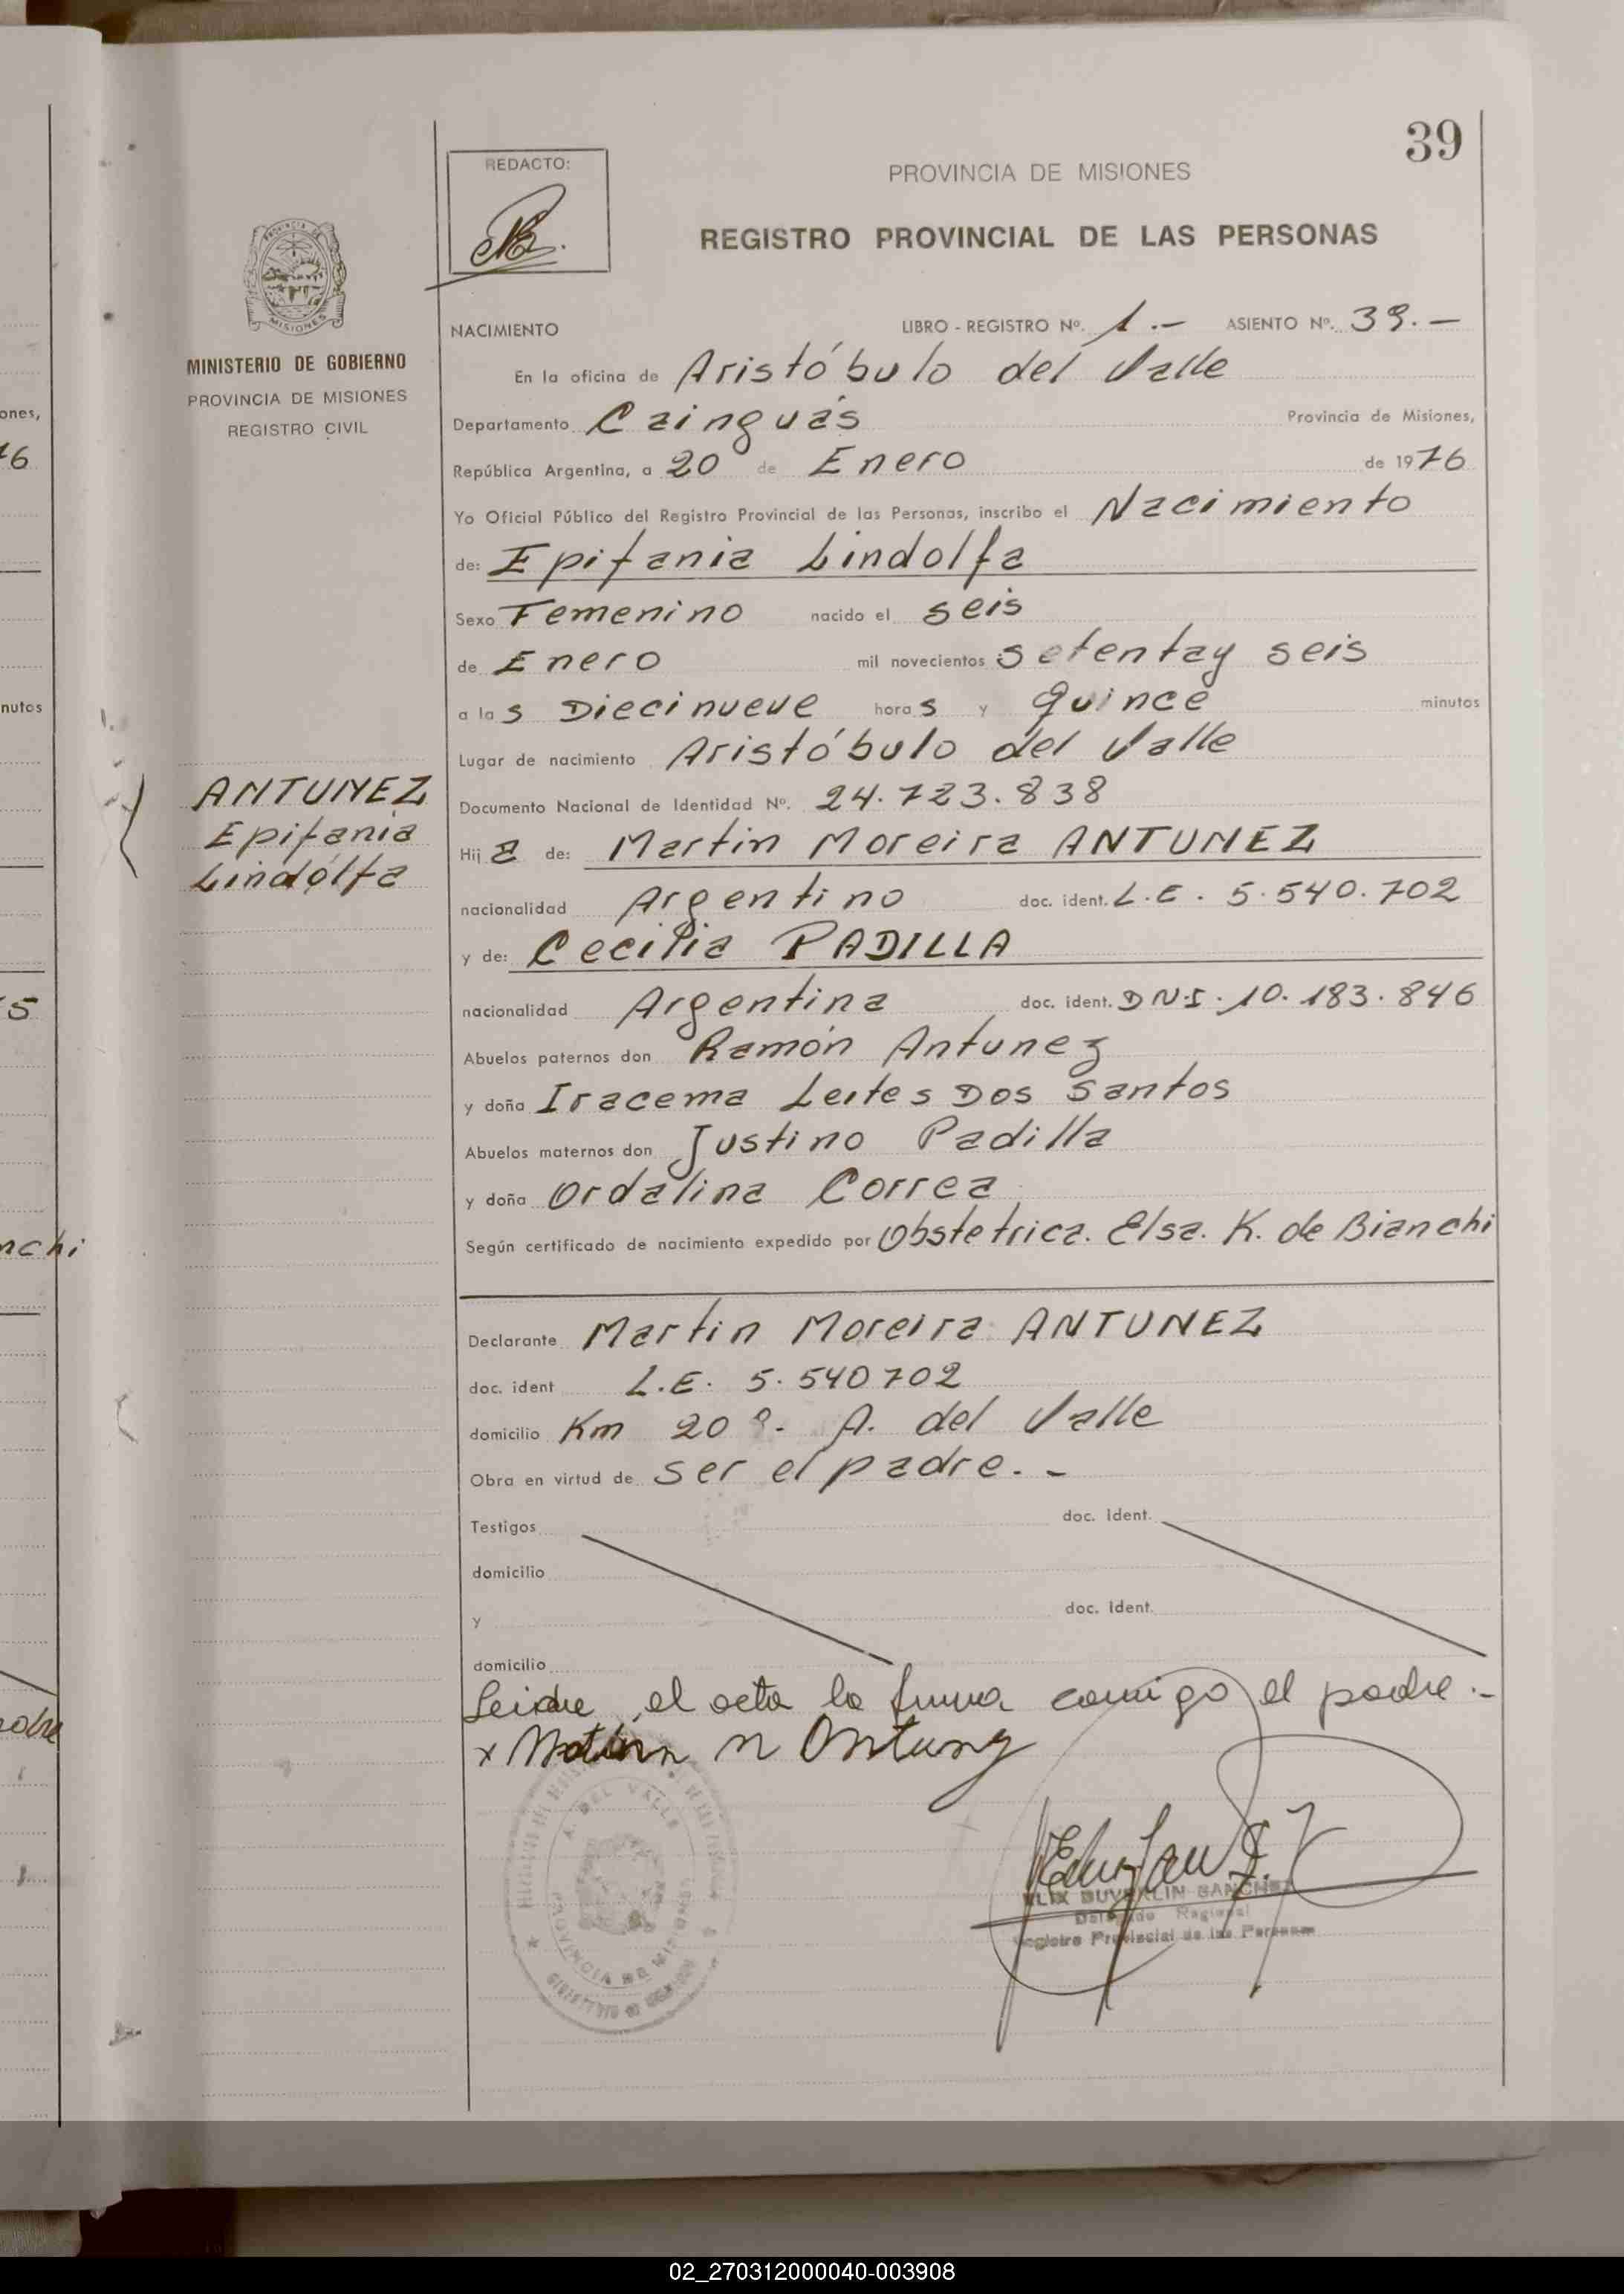 39
REDACTO:
PROVINCIA DE MISIONES
REGISTRO PROVINCIAL DE LAS PERSONAS
MISIONES
MINISTERIO DE GOBIERNO
PROVINCIA DE MISIONES
REGISTRO CIVIL
NACIMIENTO LIBRO - REGISTRO Nº. 1.- ASIENTO Nº. 39.-
En la oficina de Aristóbulo del Valle
Departamento Cainguás Provincia de Misiones,
República Argentina, a 20 de Enero de 1976
Yo Oficial Público del Registro Provincial de las Personas, inscribo el Nacimiento
de: Epifania Lindolfa
Sexo Femenino nacido el seis
de Enero mil novecientos setentay seis
a las Diecinueve horas y quince minutos
Lugar de nacimiento Aristóbulo del Valle
ANTUNEZ
Epifania
Lindolfa
Documento Nacional de Identidad Nº. 24.723.838
Hija de: Martin Moreira ANTUNEZ
nacionalidad Argentino doc. ident. L.E. 5.540.702
y de: Cecilia PADILLA
nacionalidad Argentina doc. ident. D N.I. 10.183.846
Abuelos paternos don Ramón Antunez
y doña Iracema Leites Dos Santos
Abuelos maternos don Justino Padilla
y doña Ordalina Correa
Según certificado de nacimiento expedido por Obstetrica. Elsa. K. de Bianchi
Declarante Martin Moreira ANTUNEZ
doc. ident L.E. 5.540702
domicilio Km 20 A. del Valle
Obra en virtud de ser el padre.-
Testigos doc. ident.
domicilio
y doc. ident.
domicilio
Leidre el acta la firma comigo el padre.-
x
A. DEL VALLE
PROVINCIA DE MISIONES
SANCHEZ
Delegado Regional
Registro Provincial de las Personas
02_270312000040-003908